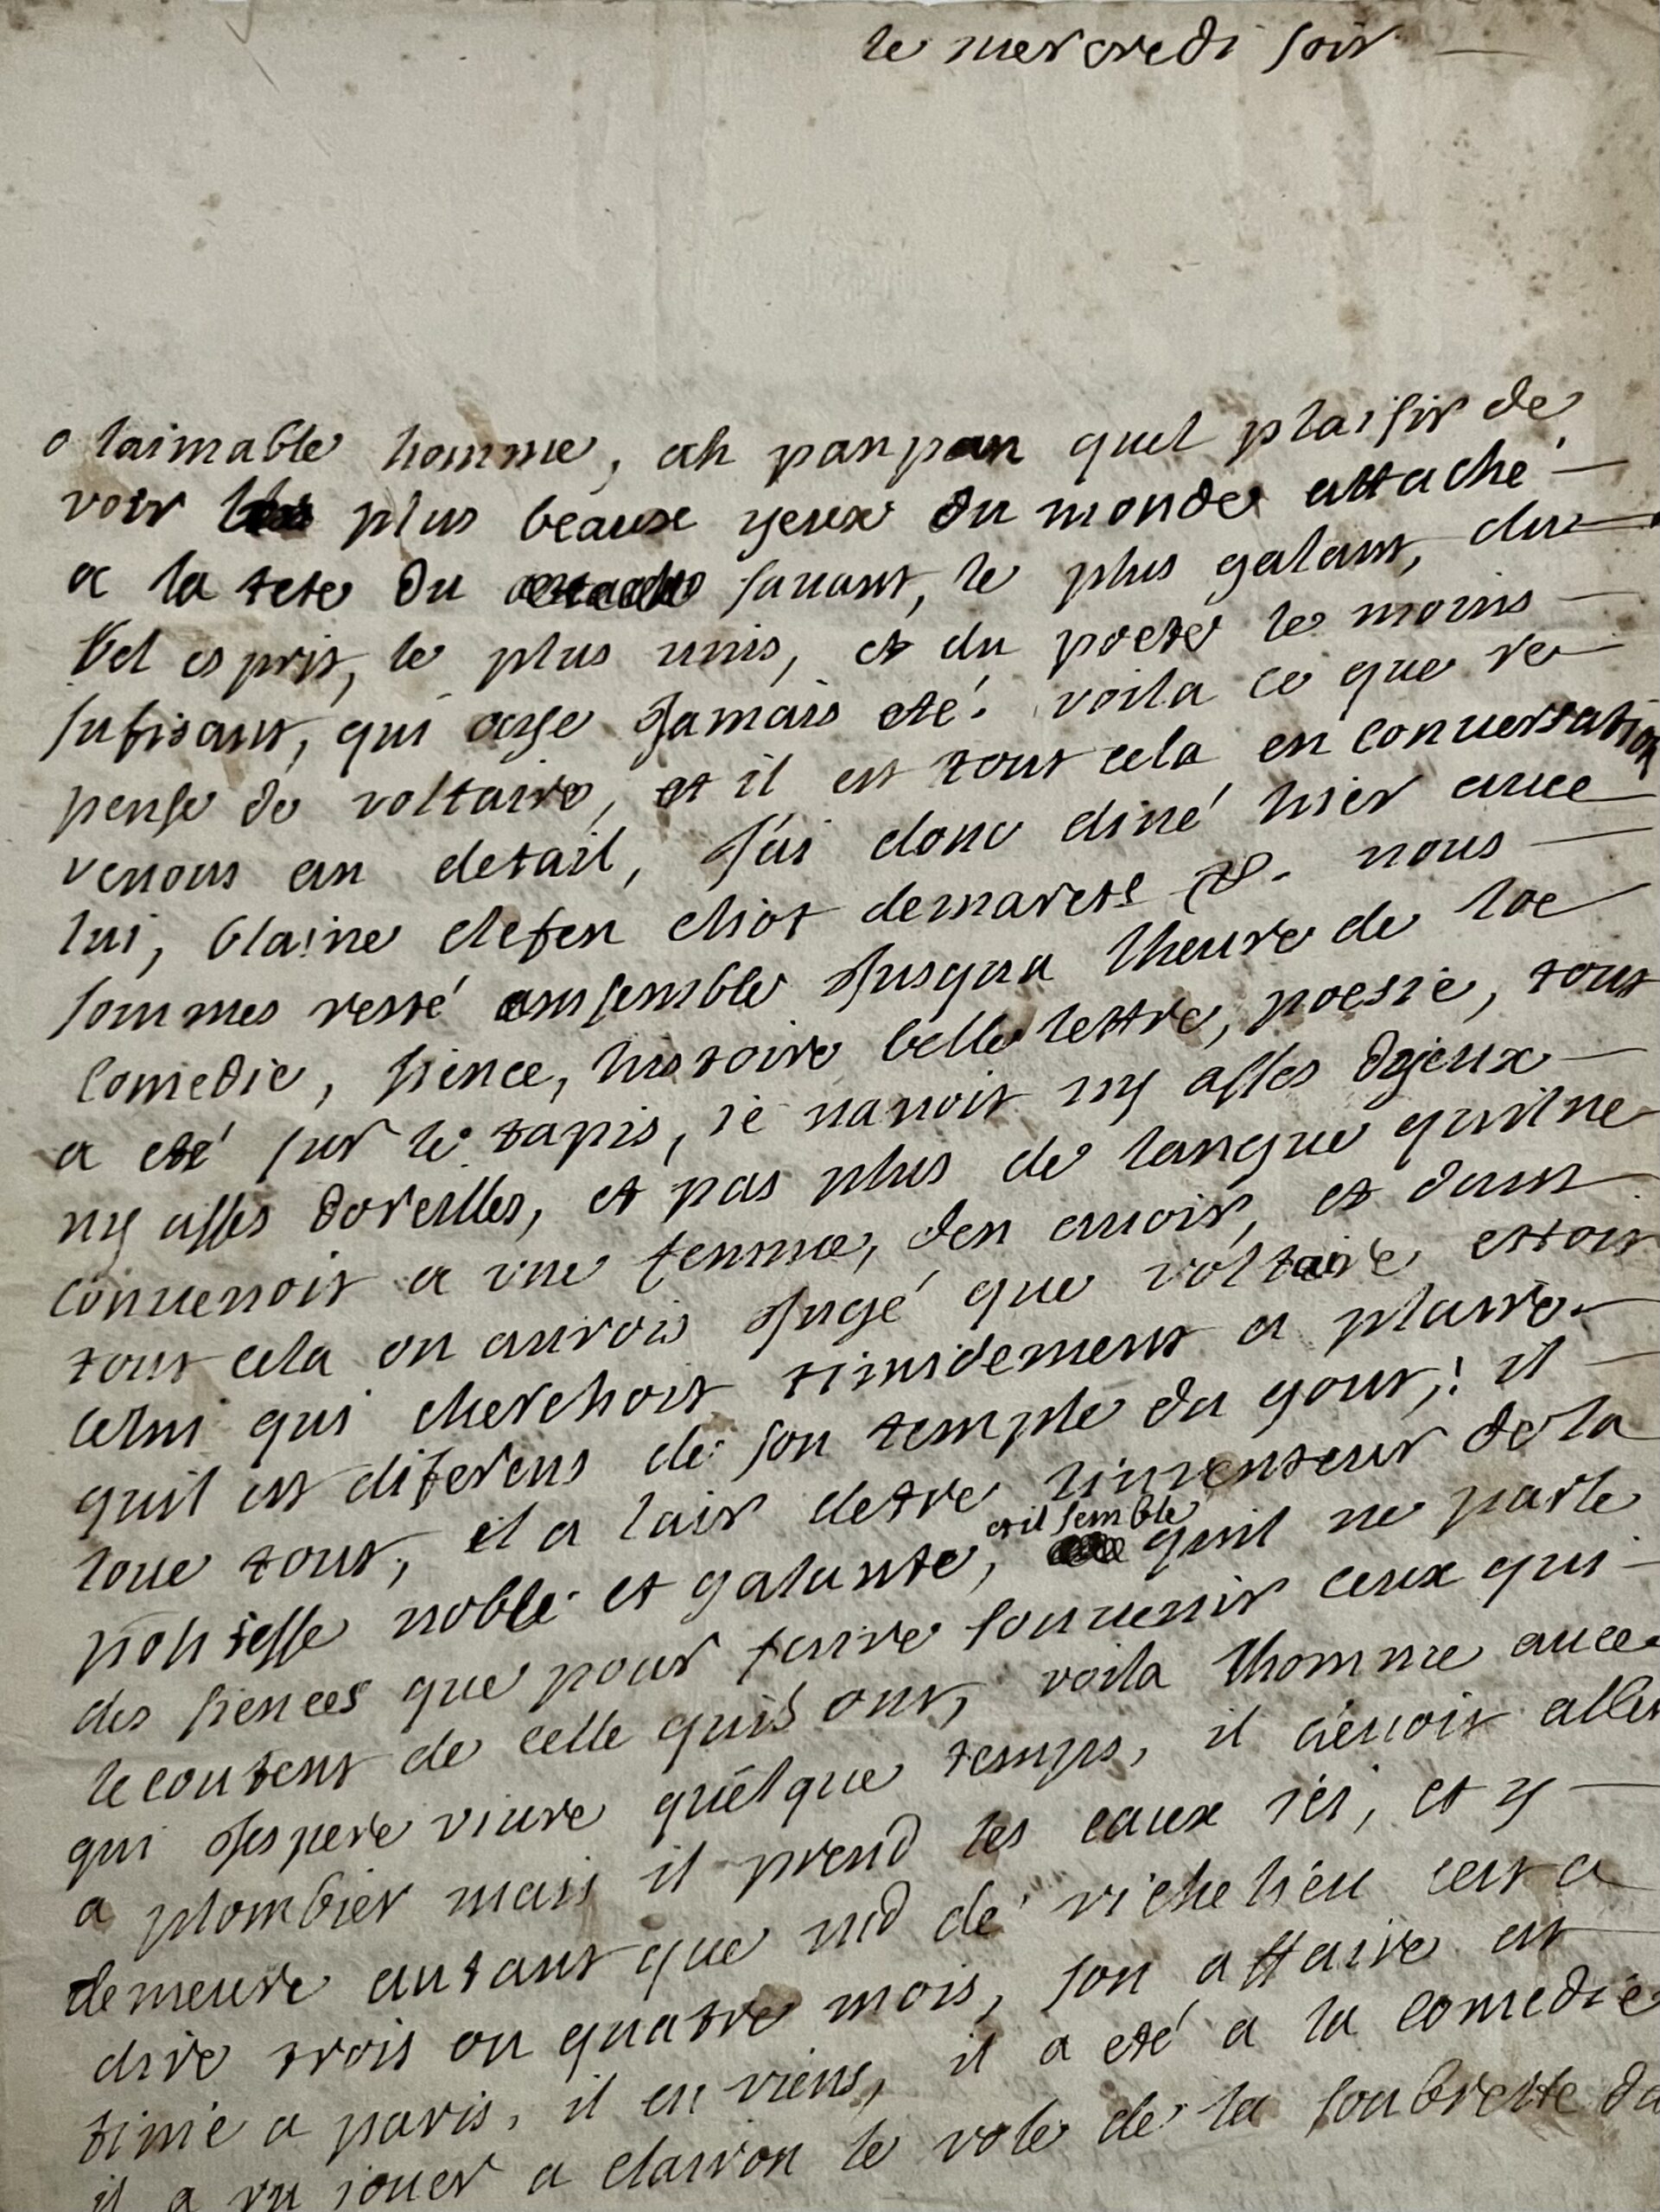 le mercredi soir
o laimable homme, ah panpan quel plaisir de
voir les plus beaux yeux du monde attaché
a la tete du savant, le plus galant, du
bel esprit, le plus unis, et du poete le moins
sufisant, qui aye jamais eté. voila ce que je
pense de voltaire, et il est tout cela en conversation
venons au detail, j'ai donc diné hier avec
lui, blaine cleten cliot demarets &. nous
sommes resté ensemble jusqua lheure de la
comedie, sience, histoire belle lettre, poesie, tout
a eté sur le tapis, je navoit ny asses dyeux
ny asses doreilles, et pas plus de langue quil ne
convenoit a une femme, den avoir, et dans
tout cela on auroit jugé que voltaire estoit
celui qui cherchoit timidement a plaire.
quil est diferens de son temple du gout,! il
loue tout, il a lair detre linventeur de la
politesse noble et galante, et il semble quil ne parle
des siences que pour faire souvenir ceux qui
lecoutent de celle quils ont, voila lhomme avec
qui jespere vivre quelque temps, il devoit aller
a plombier mais il prend les eaux ici, et y
demeure autant que md de richelieu cest a
dire trois ou quatre mois, son affaire est
finie a paris, il en viens, il a eté a la comedie
il a vu jouer a clairon le role de la soubrette da